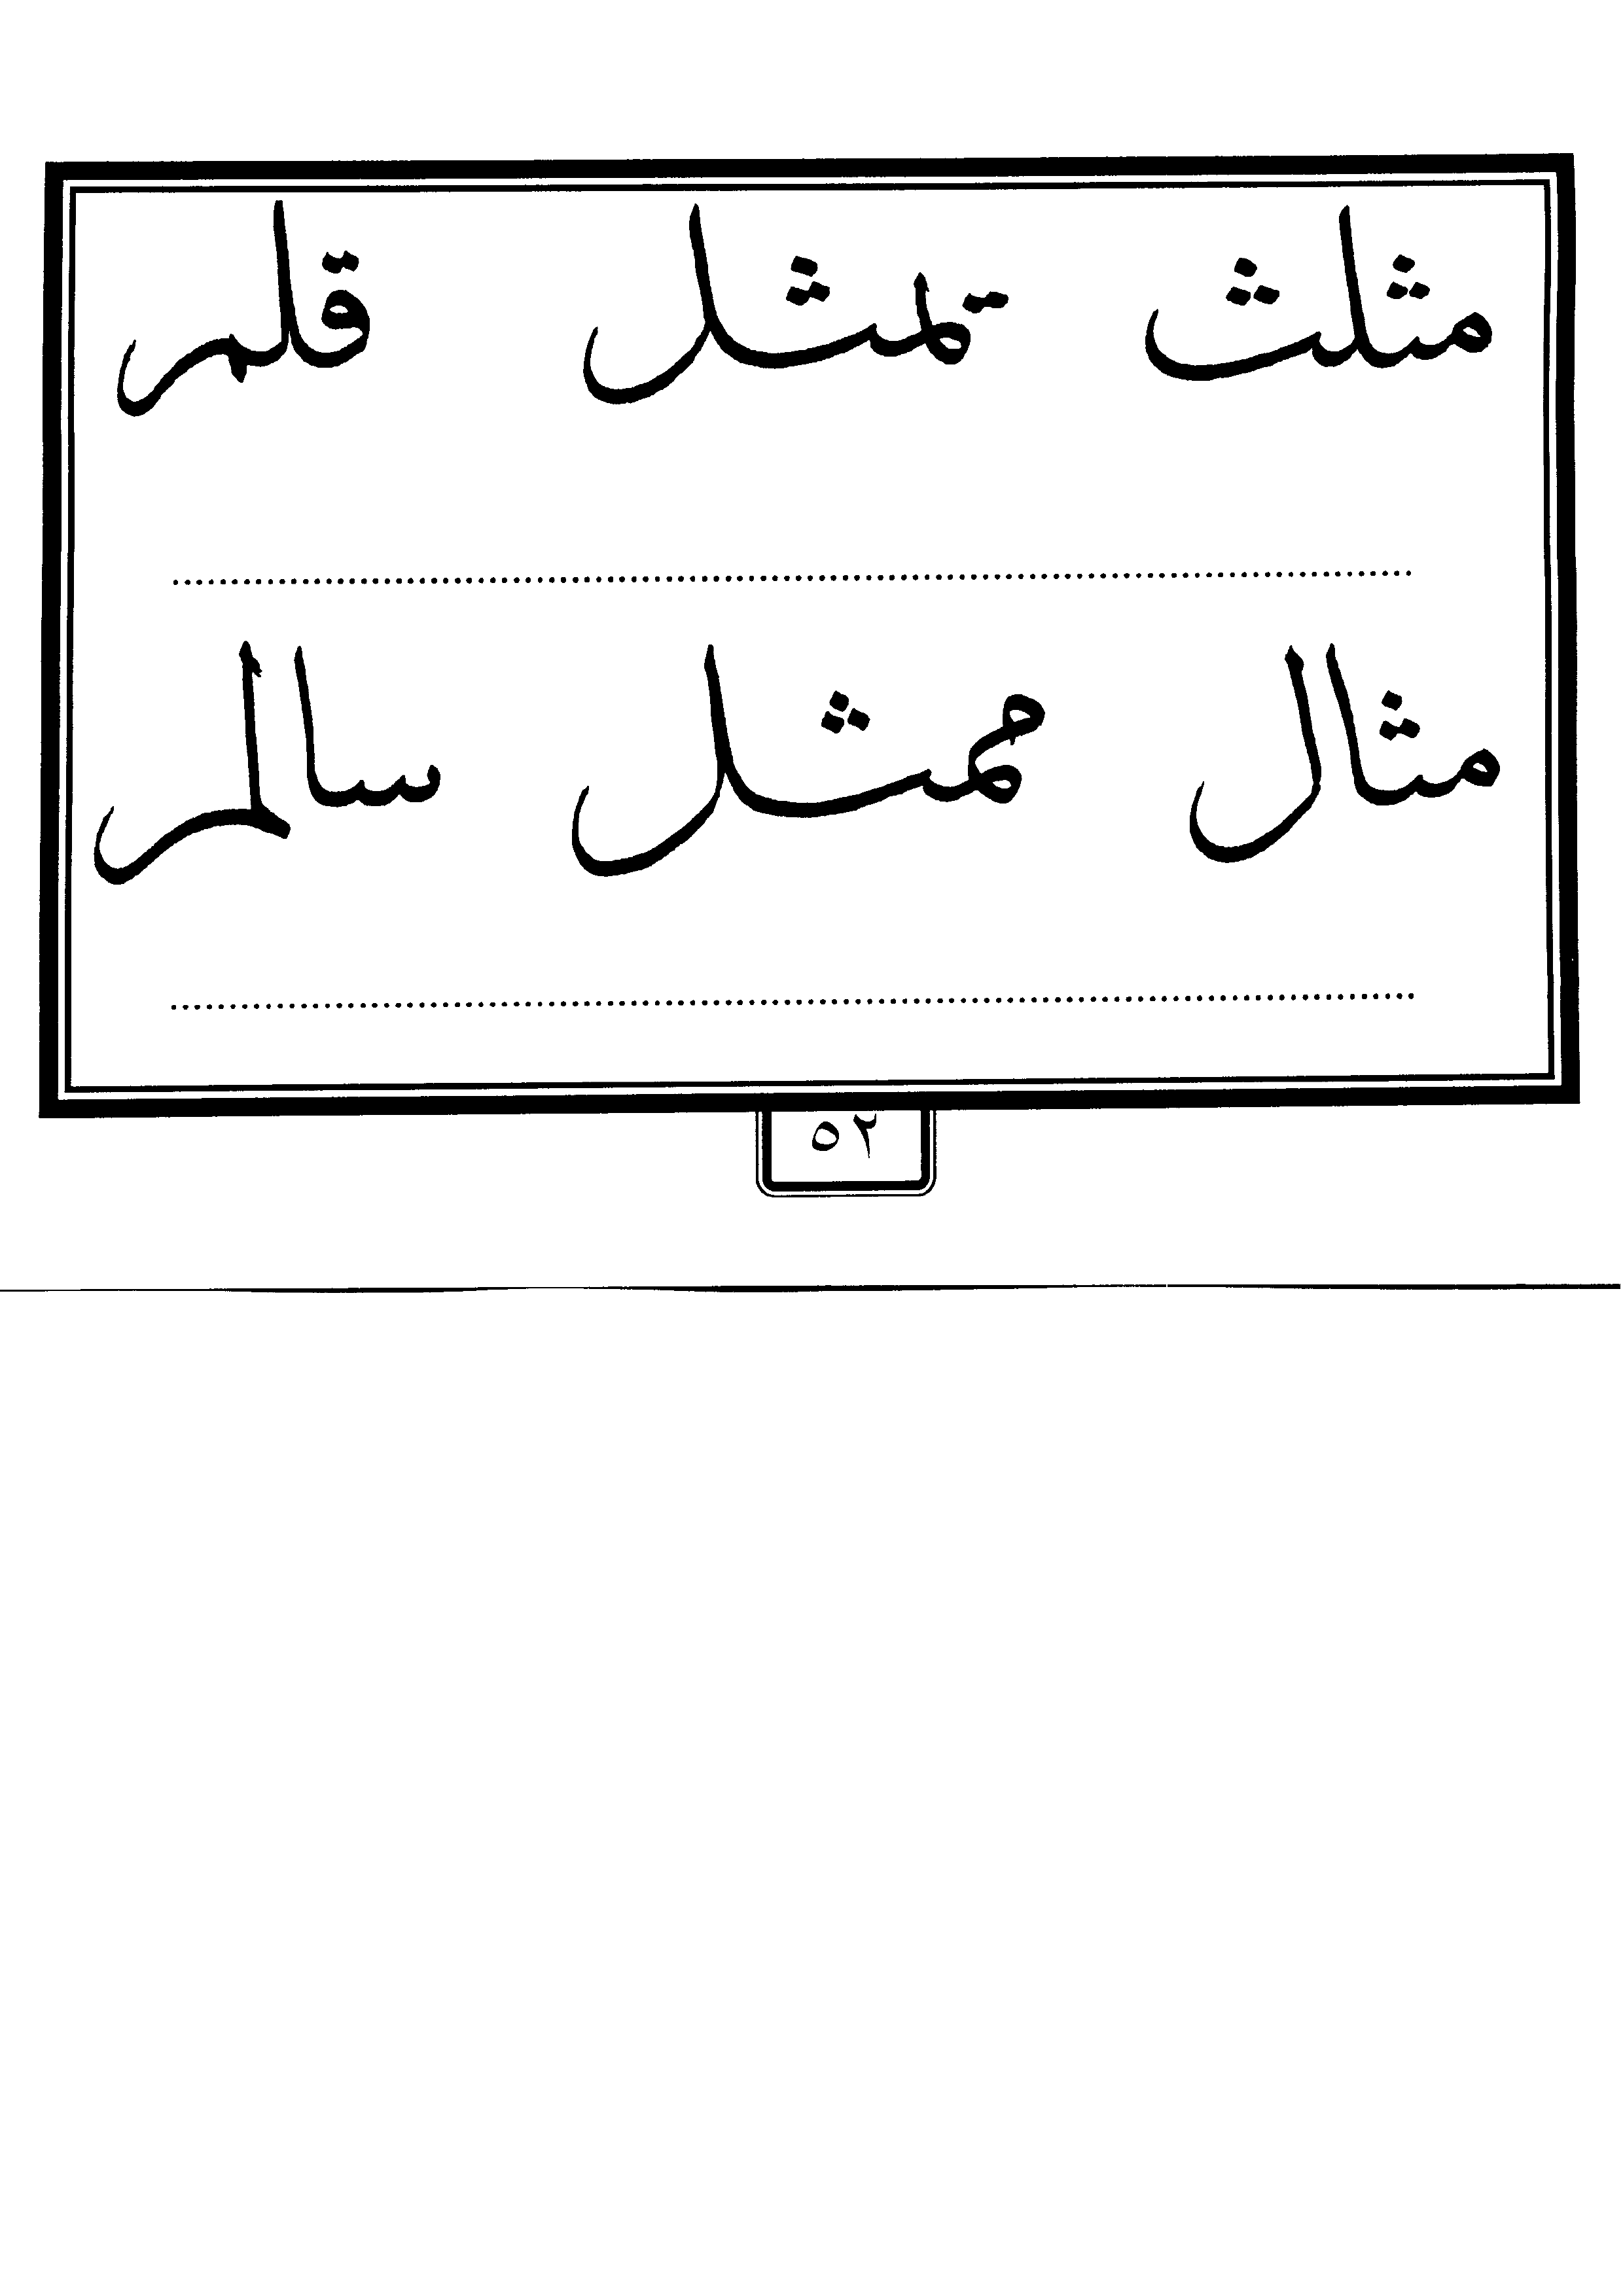 مثلث تمثل قلم
مثال ممثل سالم
٥٢